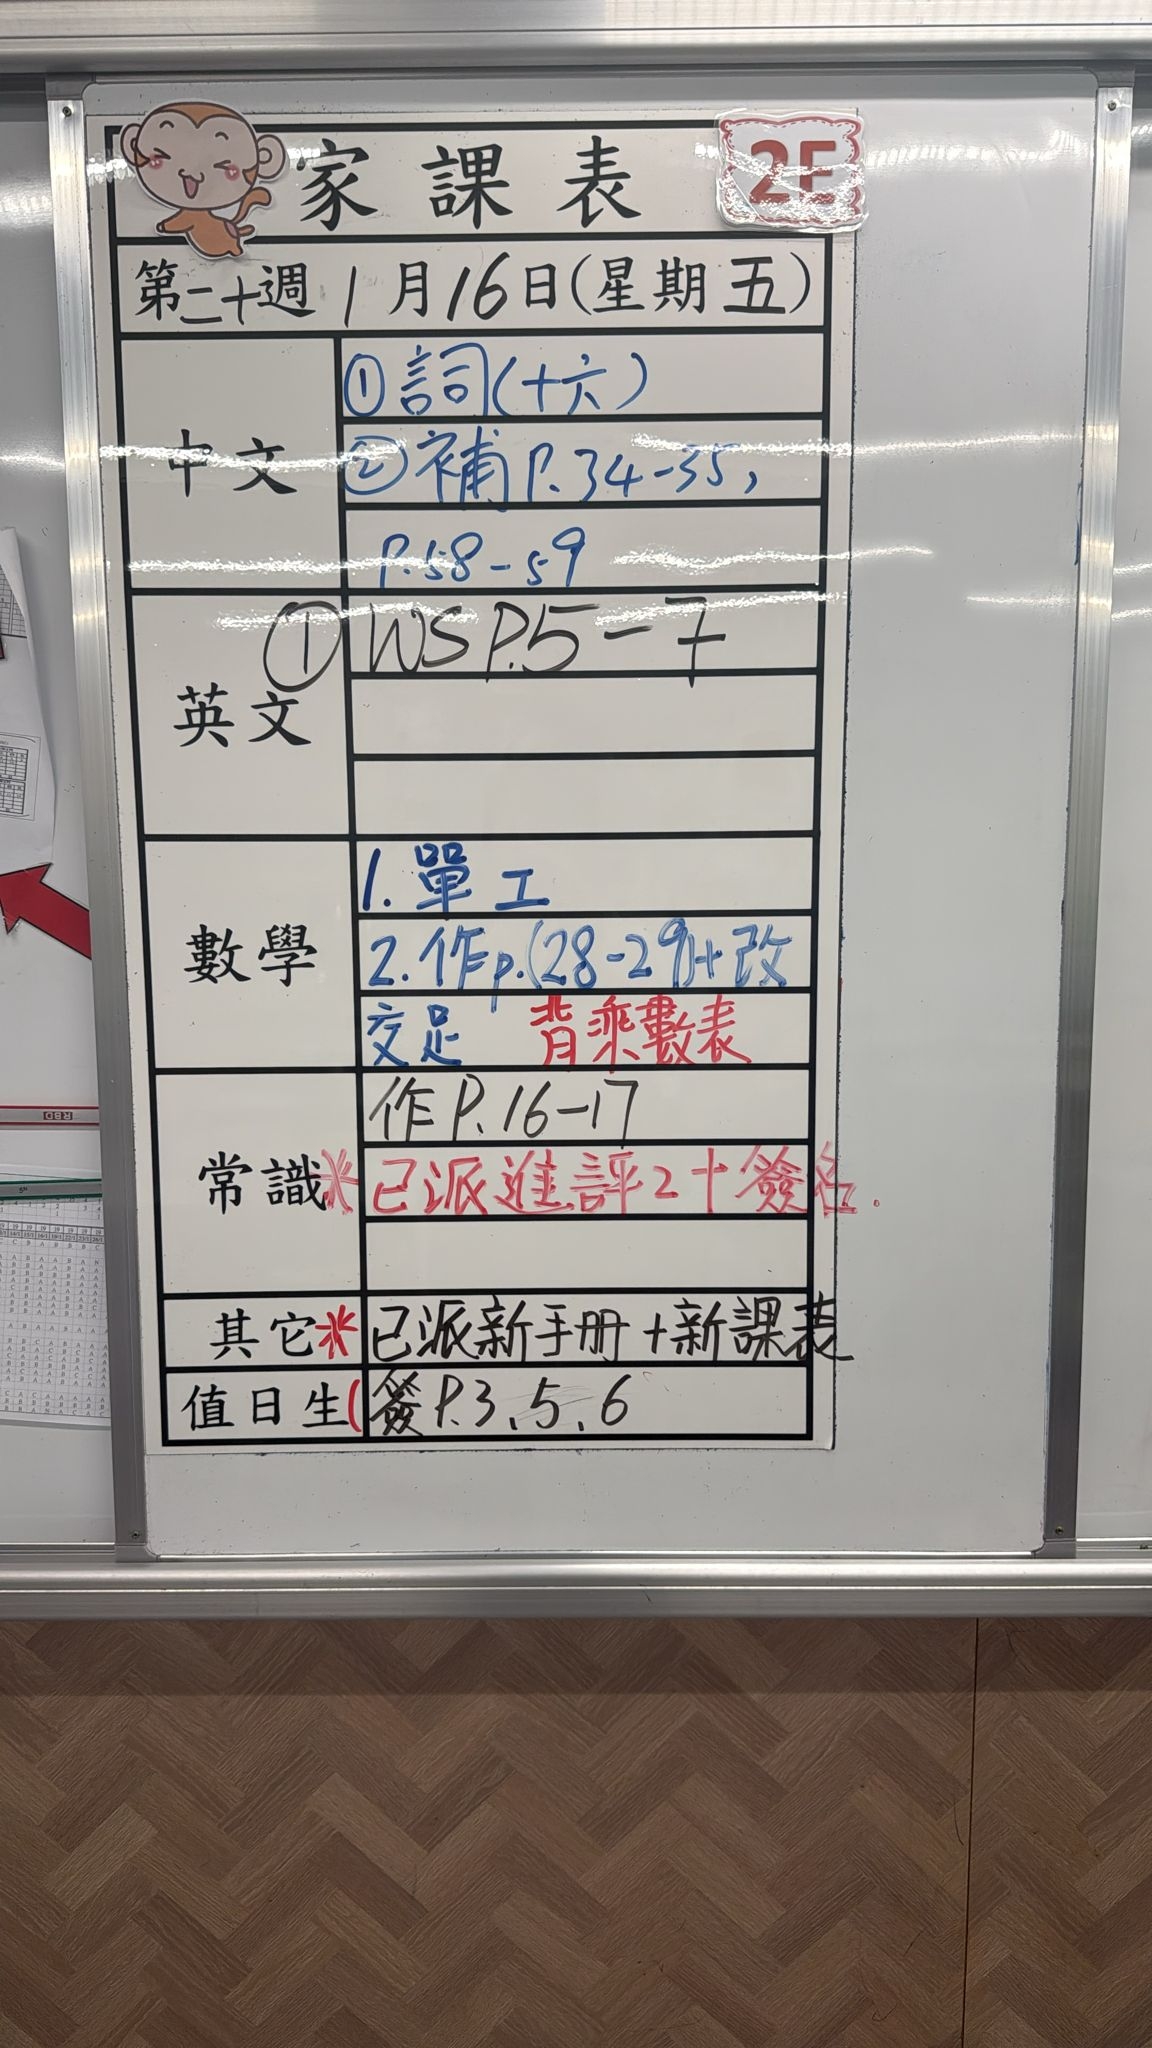 家課表
2F
第二十週 1月16日(星期五)
中文
①詞(十六)
②補P.34-35,
P.58-59
英文
①WS P.5-7
數學
1. 單工
2. 作p.(28-29)+改
交足 背乘數表
常識
作P.16-17
*已派進評2+簽名.
其它
*已派新手冊+新課表
值日生
(簽P.3、5、6
RBD